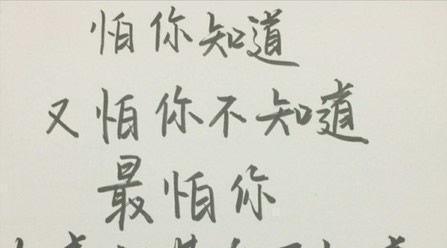 怕你知道
又怕你不知道
最怕你